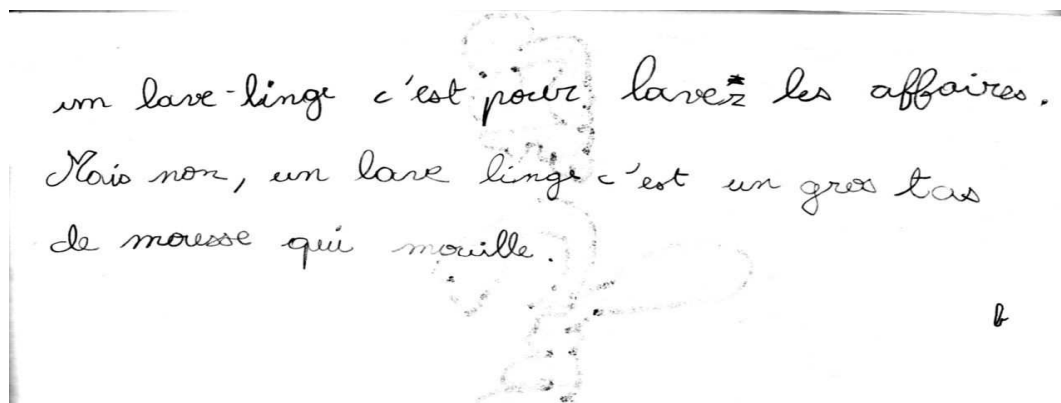 un lave-linge c'est pour lavez les affaires.
Mais non, un lave linge c'est un gros tas
de mousse qui mouille.